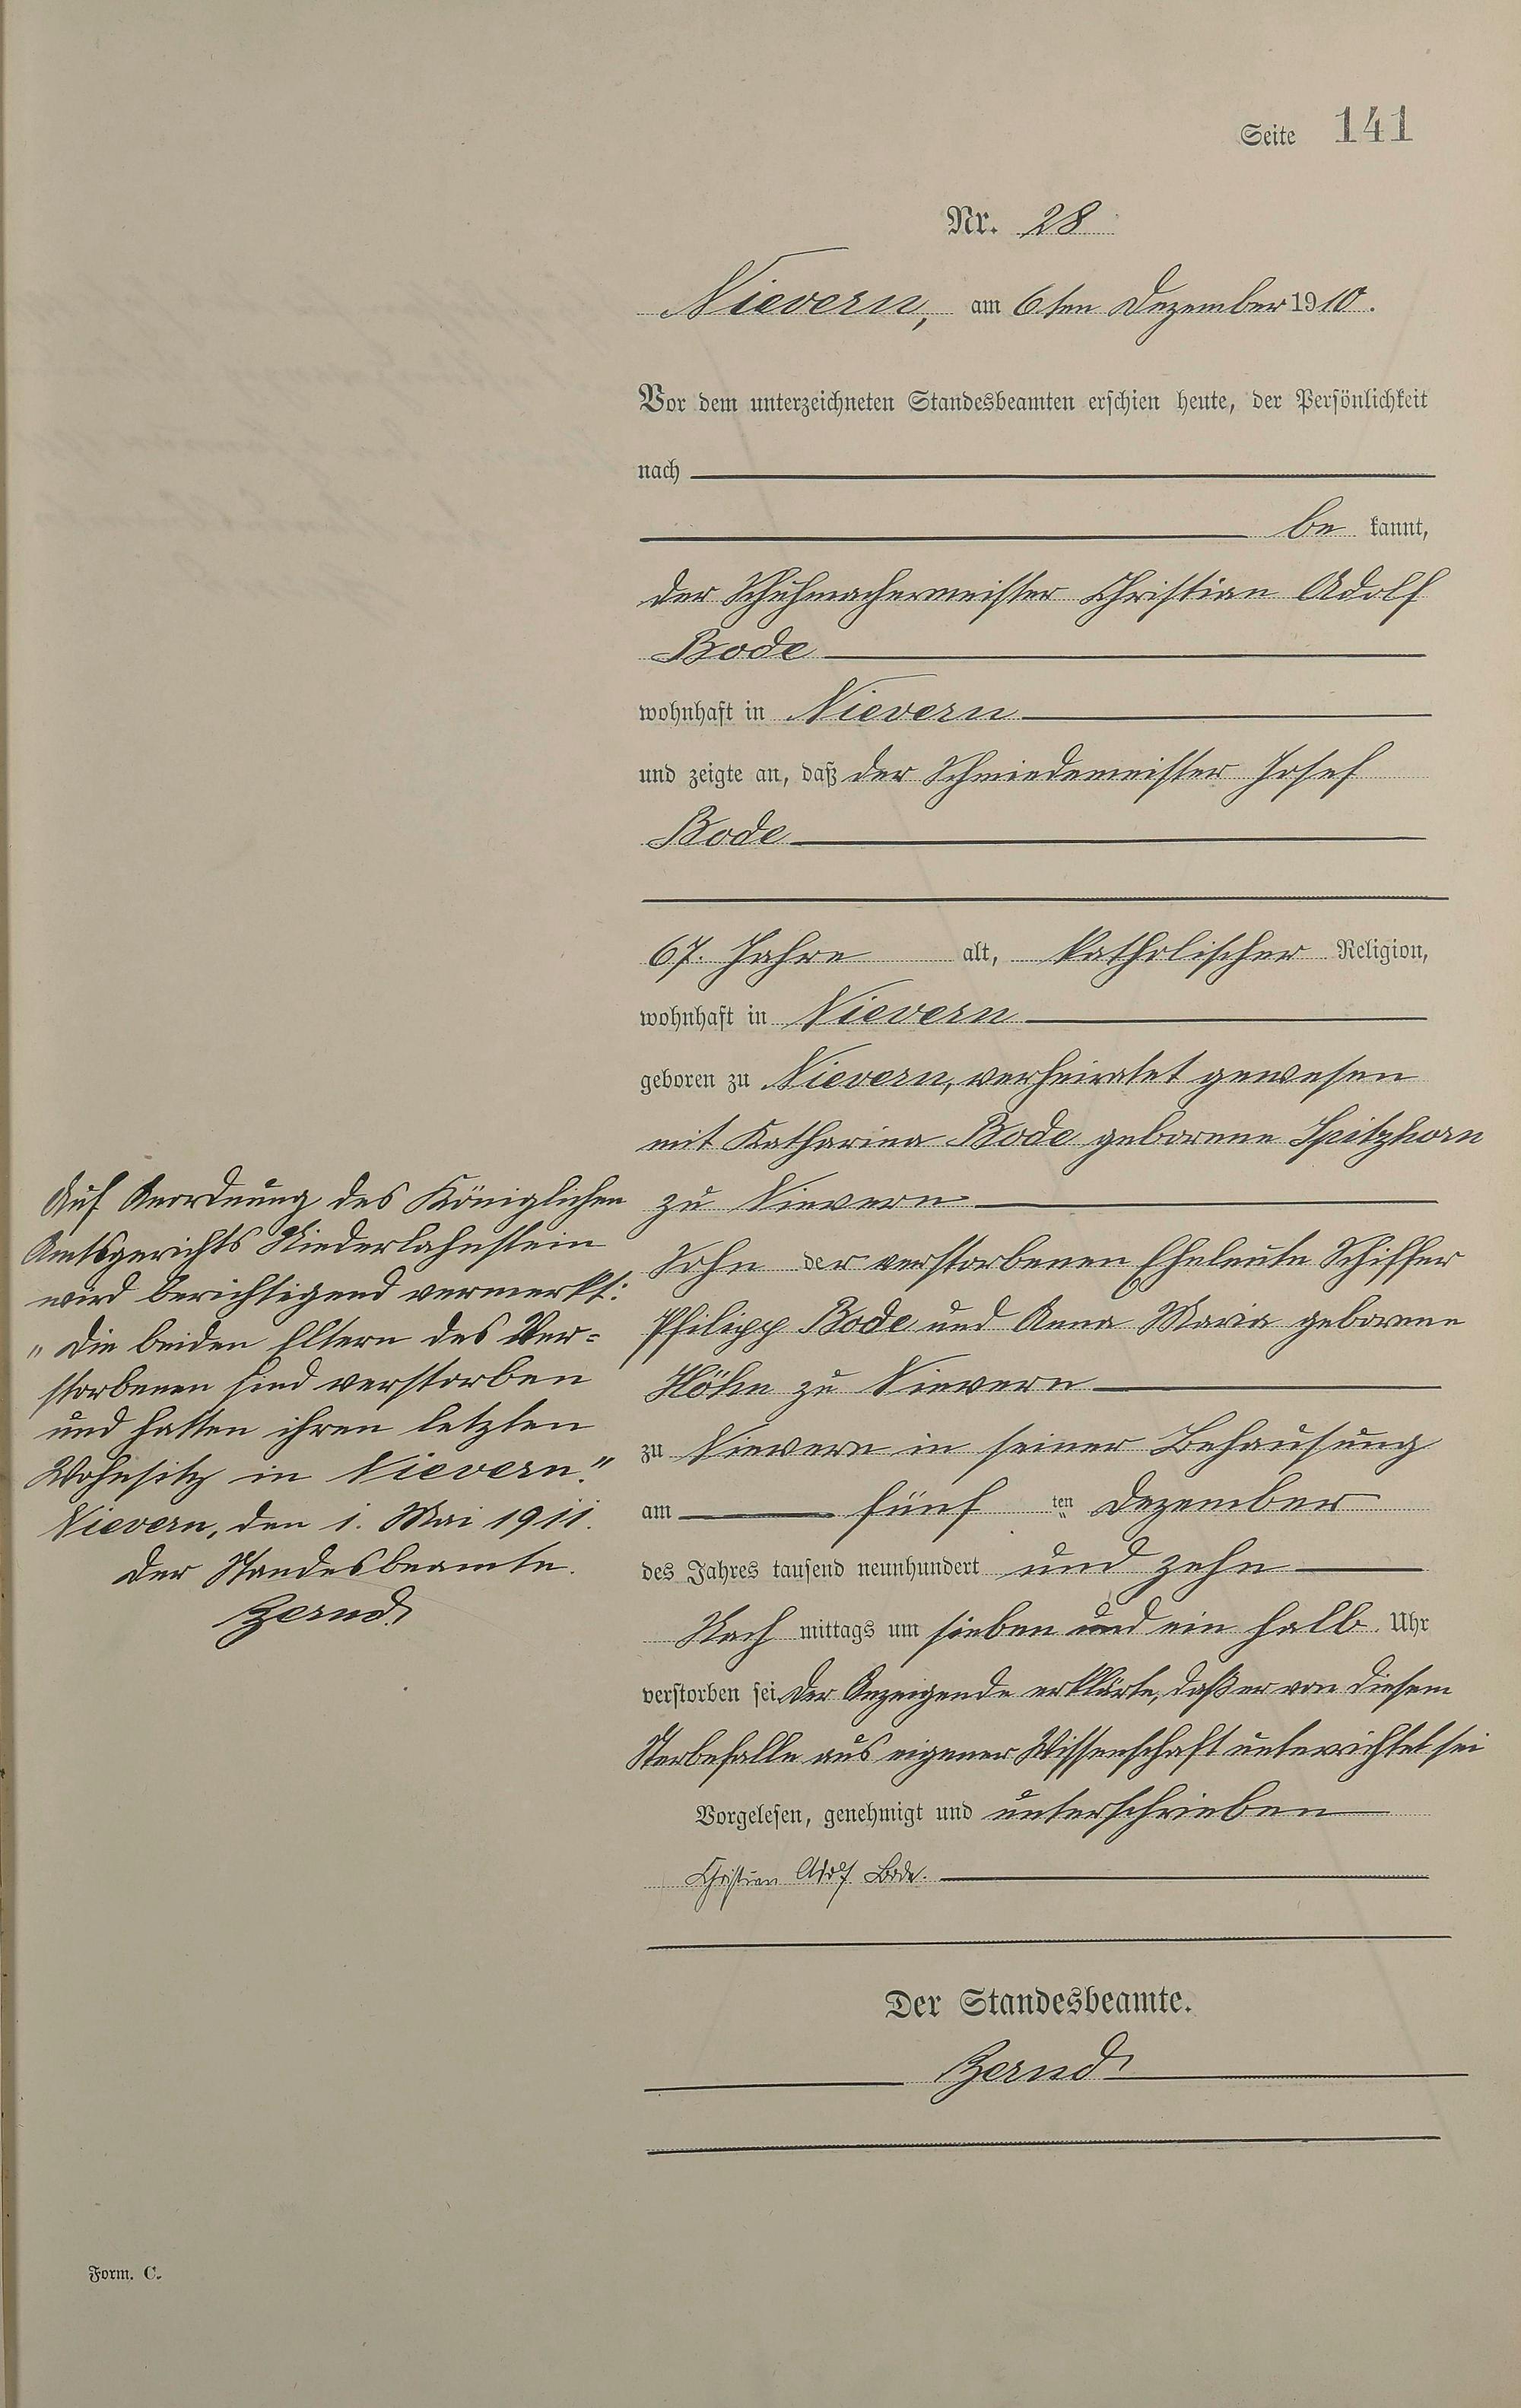 Seite 141
Nr. 28
Nievern, am 6ten Dezember 1910.
Vor dem unterzeichneten Standesbeamten erschien heute, der Persönlichkeit
nach
be kannt,
der Schuhmachermeister Christian Adolf
Bode
wohnhaft in Nievern
und zeigte an, daß der Schmiedemeister Josef
Bode
67. Jahre alt, katholischer Religion,
wohnhaft in Nievern
geboren zu Nievern, verheiratet gewesen
mit Katharina Bode geborene Spitzhorn
zu Nievern
Sohn der verstorbenen Eheleute Schiffer
Philipp Bode und Anna Maria geborene
Höhn zu Nievern
zu Nievern in seiner Behausung
am fünf ten Dezember
des Jahres tausend neunhundert und zehn
Nach mittags um sieben und ein halb Uhr
verstorben sei. Der Anzeigende erklärte, daß er von diesem
Sterbefalle aus eigener Wissenschaft unterrichtet sei
Vorgelesen, genehmigt und unterschrieben
Christian Adolf Bode.
Der Standesbeamte.
Zernd
Auf Anordnung des Königlichen
Amtsgerichts Niederlahnstein
wird berichtigend vermerkt:
"Die beiden Eltern des Ver=
storbenen sind verstorben
und hatten ihren letzten
Wohnsitz in Nievern."
Nievern, den 1. Mai 1911.
Der Standesbeamte.
Zernd
Form. C.